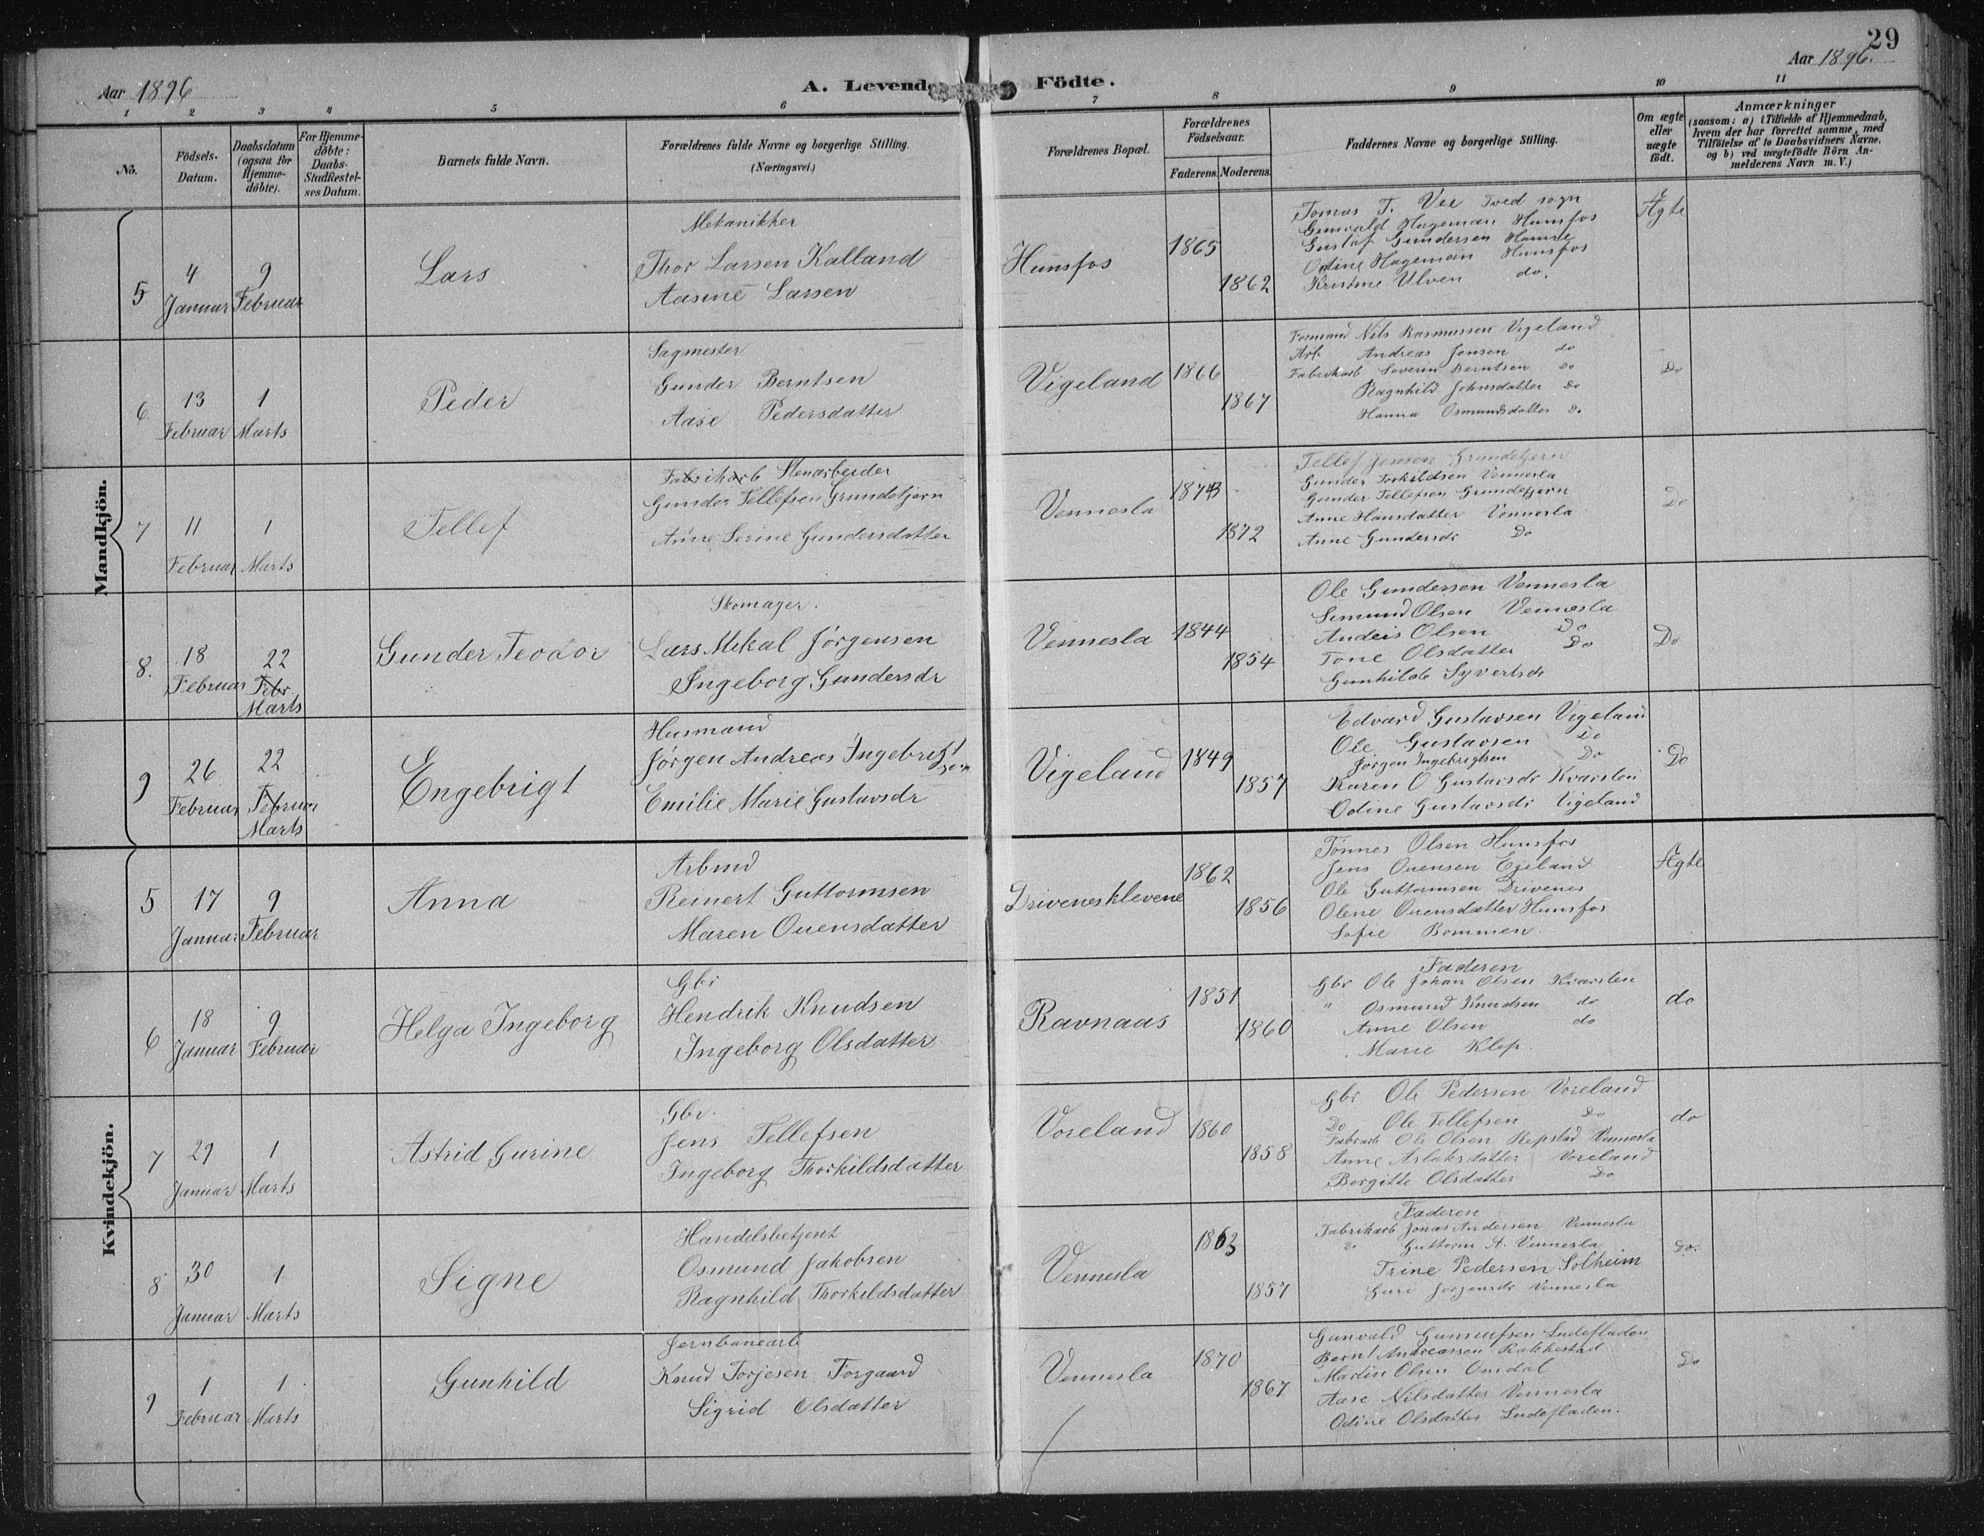 29
Aar 1896
A. Levende Födte.
Aar 1896.
1 2 3 4 5 6 7 8 9 10 11
No.
Födsels-Datum.
Daabsdatum (ogsaa for Hjemme-döbte).
For Hjemme-döbte: Daabs-Stadfæstel-ses Datum.
Barnets fulde Navn.
Forældrenes fulde Navne og borgerlige Stilling.
(Næringsvei.)
Forældrenes Bopæl.
Forældrenes Födselsaar.
Faderens. Moderens.
Faddernes Navne og borgerlige Stilling.
Om ægte eller uægte födt.
Anmærkninger
(saasom: a) i Tilfælde af Hjemmedaab,
hvem der har forrettet samme, med
Tilföielse af to Daabsvidners Navne,
og b) ved uægtefödte Börn An-
melderens Navn m. V.)
Mandkjön.
5
4 Januar
9 Februar
Lars
Mekanikker
Thor Larsen Kalland
Aasine Larsen
Hunsfos
1865
1862
Tomas T. Vee Tved sogn
Gunvald Hageman Hunsfos
Gustaf Gundersen Hamre
Odine Hageman Hunsfos
Kristine Ulven do.
Ægte
6.
13 Februar
1 Marts
Peder
Sagmester
Gunder Berntsen
Aase Pedersdatter
Vigeland
1866
1867
Formand Nils Rasmussen Vigeland
Arb Andreas Jensen do
Fabrikarb Severin Berntsen do
Ragnhild Johnsdatter do
Hanna Osmundsdatter d.
Do
7
11 Februar
1 Marts
Tellef
Fabrikarb Stenarbeider
Gunder Tellefsen Grundetjern
Anne Serine Gundersdatter
Vennesla
1873
1872
Tellef Jensen Grundetjern
Gunder Torkildsen Vennesla
Gunder Tellefsen Grundetjern
Anne Hansdatter Vennesla
Anne Gundersdr Do
Do
8.
18 Februar
22 Febr Marts
Gunder Teodor
Skomager.
Lars Mekal Jørgensen
Ingeborg Gundersdr
Vennesla
1844
1854
Ole Gundersen Vennesla
Simund Olsen Vennesla
Anders Olsen Do
Tone Olsdatter Do
Gunhild Syvertsdr
Do
9
26 Februar
22 Februar Marts
Engebrigt
Husmand
Jørgen Andreas Ingebrigtsen
Emilie Marie Gustavsdr
Vigeland
1849
1857
Edvard Gustavsen Vigeland
Ole Gustavsen Do
Jørgen Ingebrigtsen Do
Karen O Gustavsdr Kvarsten
Odine Gustavsdr Vigeland
Do
Kvindekjön.
5
17 Januar
9 Februar
Anna
Arbmd
Reinert Guttormsen
Maren Ouensdatter
Drivenesklevene
1862
1856
Tönnes Olsen Hunsfos
Jens Ouensen Egeland
Ole Guttormsen Drivenes
Olene Ouensdatter Hunsfos
Sofie Bommen
Ægte
6
18 Januar
9 Februar
Helga Ingeborg
Gbr
Hendrik Knudsen
Ingeborg Olsdatter
Ravnaas
1851
1860
Faderen
Gbr Ole Johan Olsen Kvarsten
" Osmund Knudsen do
Anne Olsen do
Marie Klep.
do
7
29 Januar
1 Marts
Astrid Gurine
Gbr.
Jens Tellefsen
Ingeborg Thorkildsdatter
Voreland
1860
1858
Gbr Ole Pedersen Voreland
Do Ole Tellefsen Do
Fabrarb Ole Olsen Repstad Vennesla
Anne Aslaksdatter Voreland
Bergitte Olsdatter Do
do
8
30 Januar
1 Marts
Signe
Handelsbetjent
Osmund Jakobsen
Ragnhild Thorkildsdatter
Vennesla
1863
1857
Faderen
Fabrikarb Jonas Andersen Vennesla
do Guttorm A. Vennesla
Trine Pedersen Solheim
Guri Jørgensdr Vennesla
Do.
9
1 Februar
1 Marts
Gunhild
Jernbanearb
Knud Torjesen Forgaard
Sigrid Olsdatter
Vennesla
1870
1867
Gunvald Ludefladen
Bernt Andreassen Rakkestad
Martin Olsen Omdal
Aase Nilsdatter Vennesla
Odine Olsdatter Ludefladen.
Do